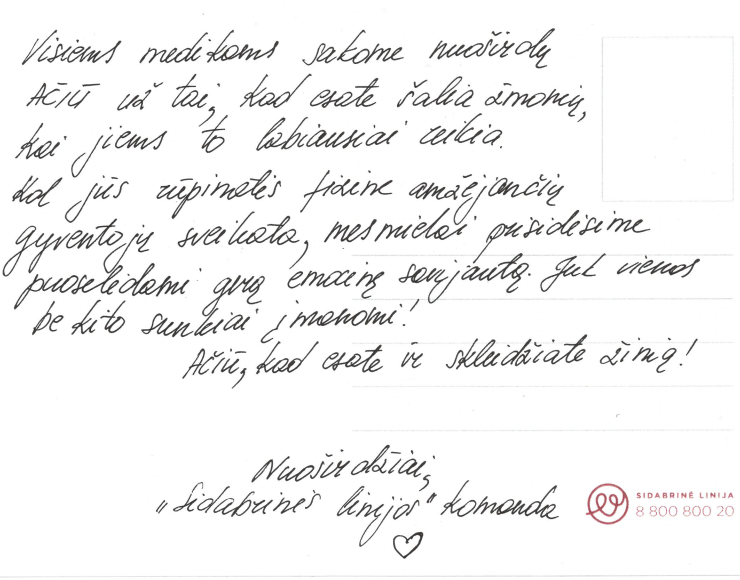 Visiems medikams sakome nuoširdų
AČIŪ už tai, kad esate šalia žmonių,
kai jiems to labiausiai reikia.
Kol jūs rūpinatės fizine amžėjančių
gyventojų sveikata, mes mielai prisidėsime
puoselėdami gerą emocinę savijautą. Juk vienas
be kito sunkiai įmanomi!
Ačiū, kad esate ir skleidžiate žinią!
Nuoširdžiai,
„Sidabrinės linijos" komanda
SIDABRINĖ LINIJA
8 800 800 20